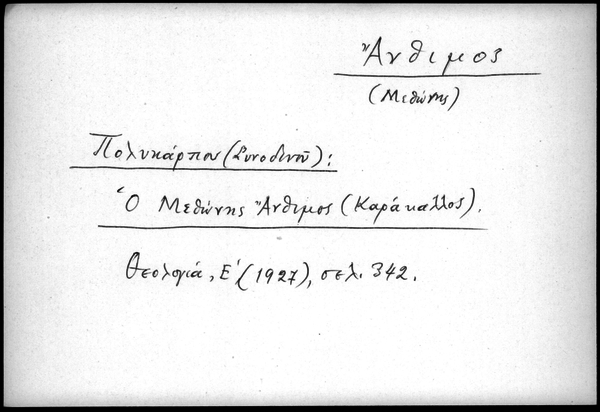 Ἄνθιμος
(Μεθώνης)
Πολυκάρπου (Συνοδινοῦ):
Ὁ Μεθώνης Ἄνθιμος (Καράκαλλος).
Θεολογιά, Ε' (1927), σελ. 342.